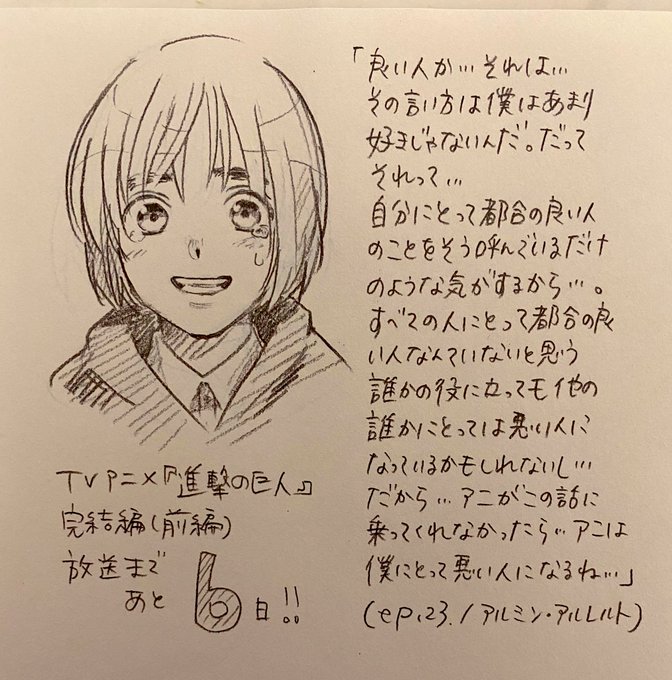 「良い人か…それは…
その言い方は僕はあまり
好きじゃないんだ。だって
それって…
自分にとって都合の良い人
のことをそう呼んでいるだけ
のような気がするから…。
すべての人にとって都合の良
い人なんていないと思う
誰かの役に立っても他の
誰かにとっては悪い人に
なっているかもしれないし…
だから…アニがこの話に
乗ってくれなかったら…アニは
僕にとって悪い人になるね…」
(ep.23./アルミン・アルレルト)
TVアニメ『進撃の巨人』
完結編(前編)
放送まで
あと6日!!